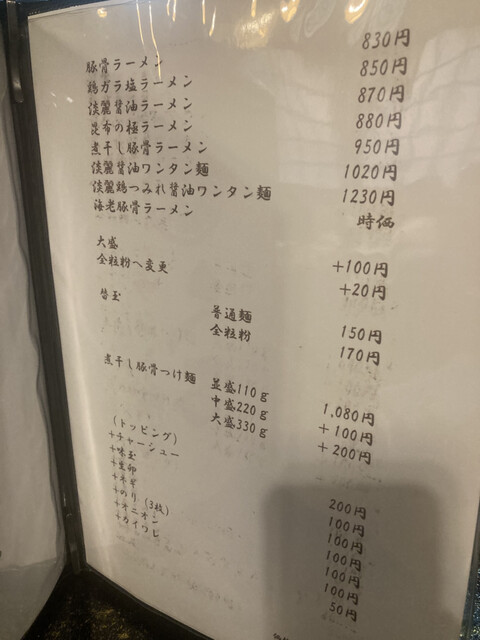 豚骨ラーメン 830円
鶏ガラ塩ラーメン 850円
淡麗醤油ラーメン 870円
昆布の極ラーメン 880円
煮干し豚骨ラーメン 950円
淡麗醤油ワンタン麺 1020円
淡麗鶏つみれ醤油ワンタン麺 1230円
海老豚骨ラーメン 時価
大盛 +100円
全粒粉へ変更 +20円
替玉
普通麺 150円
全粒粉 170円
煮干し豚骨つけ麺
並盛110g 1,080円
中盛220g +100円
大盛330g +200円
(トッピング)
+チャーシュー 200円
+味玉 100円
+生卵 100円
+ネギ 100円
+のり(3枚) 100円
+オニオン 100円
+カイワレ 50円